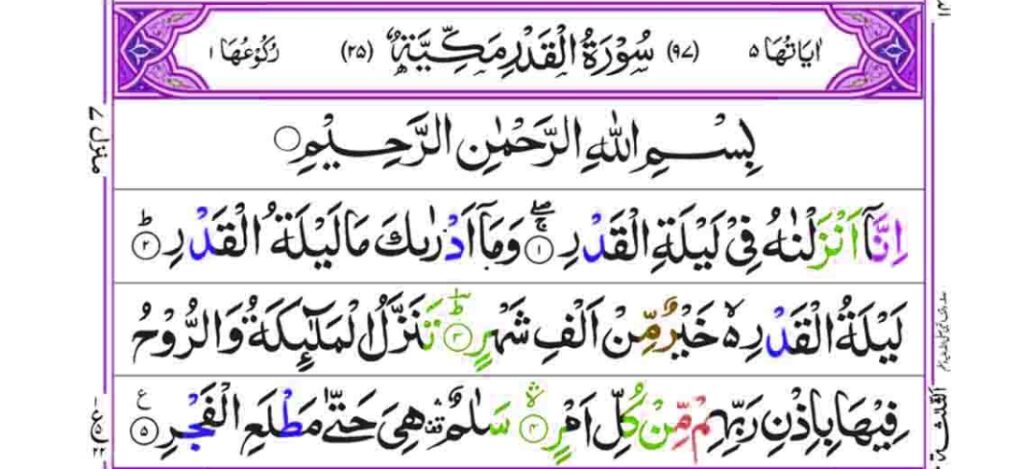 اٰيَاتُهَا ٥ (٩٧) سُوْرَةُ الْقَدْرِ مَكِّيَّةٌ (٢٥) رُكُوْعُهَا ١
بِسْمِ اللّٰهِ الرَّحْمٰنِ الرَّحِيْمِ
اِنَّاۤ اَنْزَلْنٰهُ فِيْ لَيْلَةِ الْقَدْرِ ۖۚ ١ وَمَاۤ اَدْرٰىكَ مَا لَيْلَةُ الْقَدْرِ ؕ ٢
لَيْلَةُ الْقَدْرِ ۙ خَيْرٌ مِّنْ اَلْفِ شَهْرٍ ؕ ٣ تَنَزَّلُ الْمَلٰٓئِكَةُ وَالرُّوْحُ
فِيْهَا بِاِذْنِ رَبِّهِمْ مِّنْ كُلِّ اَمْرٍ ۛ ٤ سَلٰمٌ ۛ هِيَ حَتّٰى مَطْلَعِ الْفَجْرِ ع ٥
منزل ٧